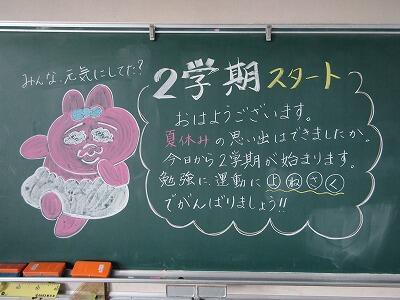 みんな、元気にしてた?
2学期スタート
おはようございます。
夏休みの思い出はできましたか。
今日から2学期が始まります。
勉強に、運動によねざく
でがんばりましょう!!